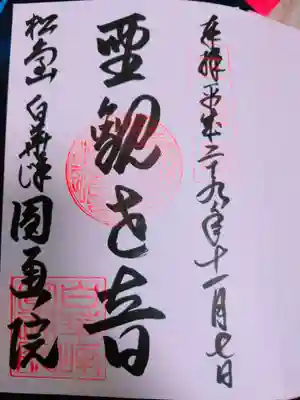 奉拝 平成二十九年十一月七日
聖観世音
松島 白華峰 圓通院